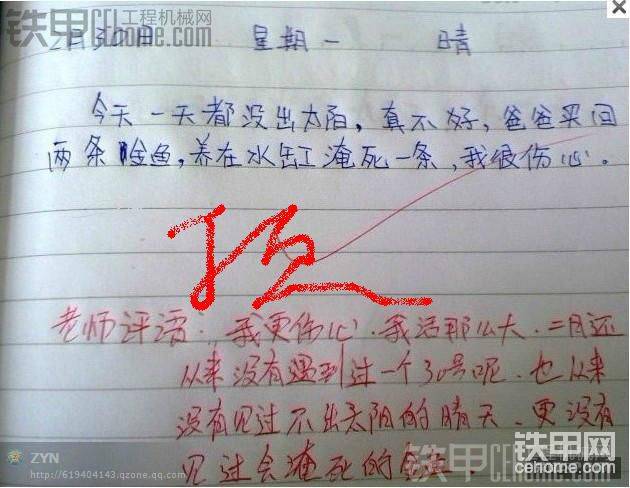 铁甲 工程机械网
CEHOME.COM
月30日 星期一 晴
今天一天都没出太阳,真不好,爸爸买回
两条金鱼,养在水缸淹死一条,我很伤心。
顶
老师评语.我更伤心.我活那么大.二月还
从来没有遇到过一个30号呢.也从来
没有见过不出太阳的晴天.更没有
见过会淹死的金鱼.
ZYN
http://619404143.qzone.qq.com
铁甲
CEHOME.COM
铁甲网
cehome.com